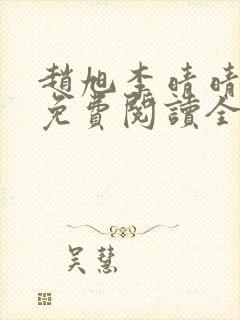 趙旭李晴晴
免費閱讀全
吴慧